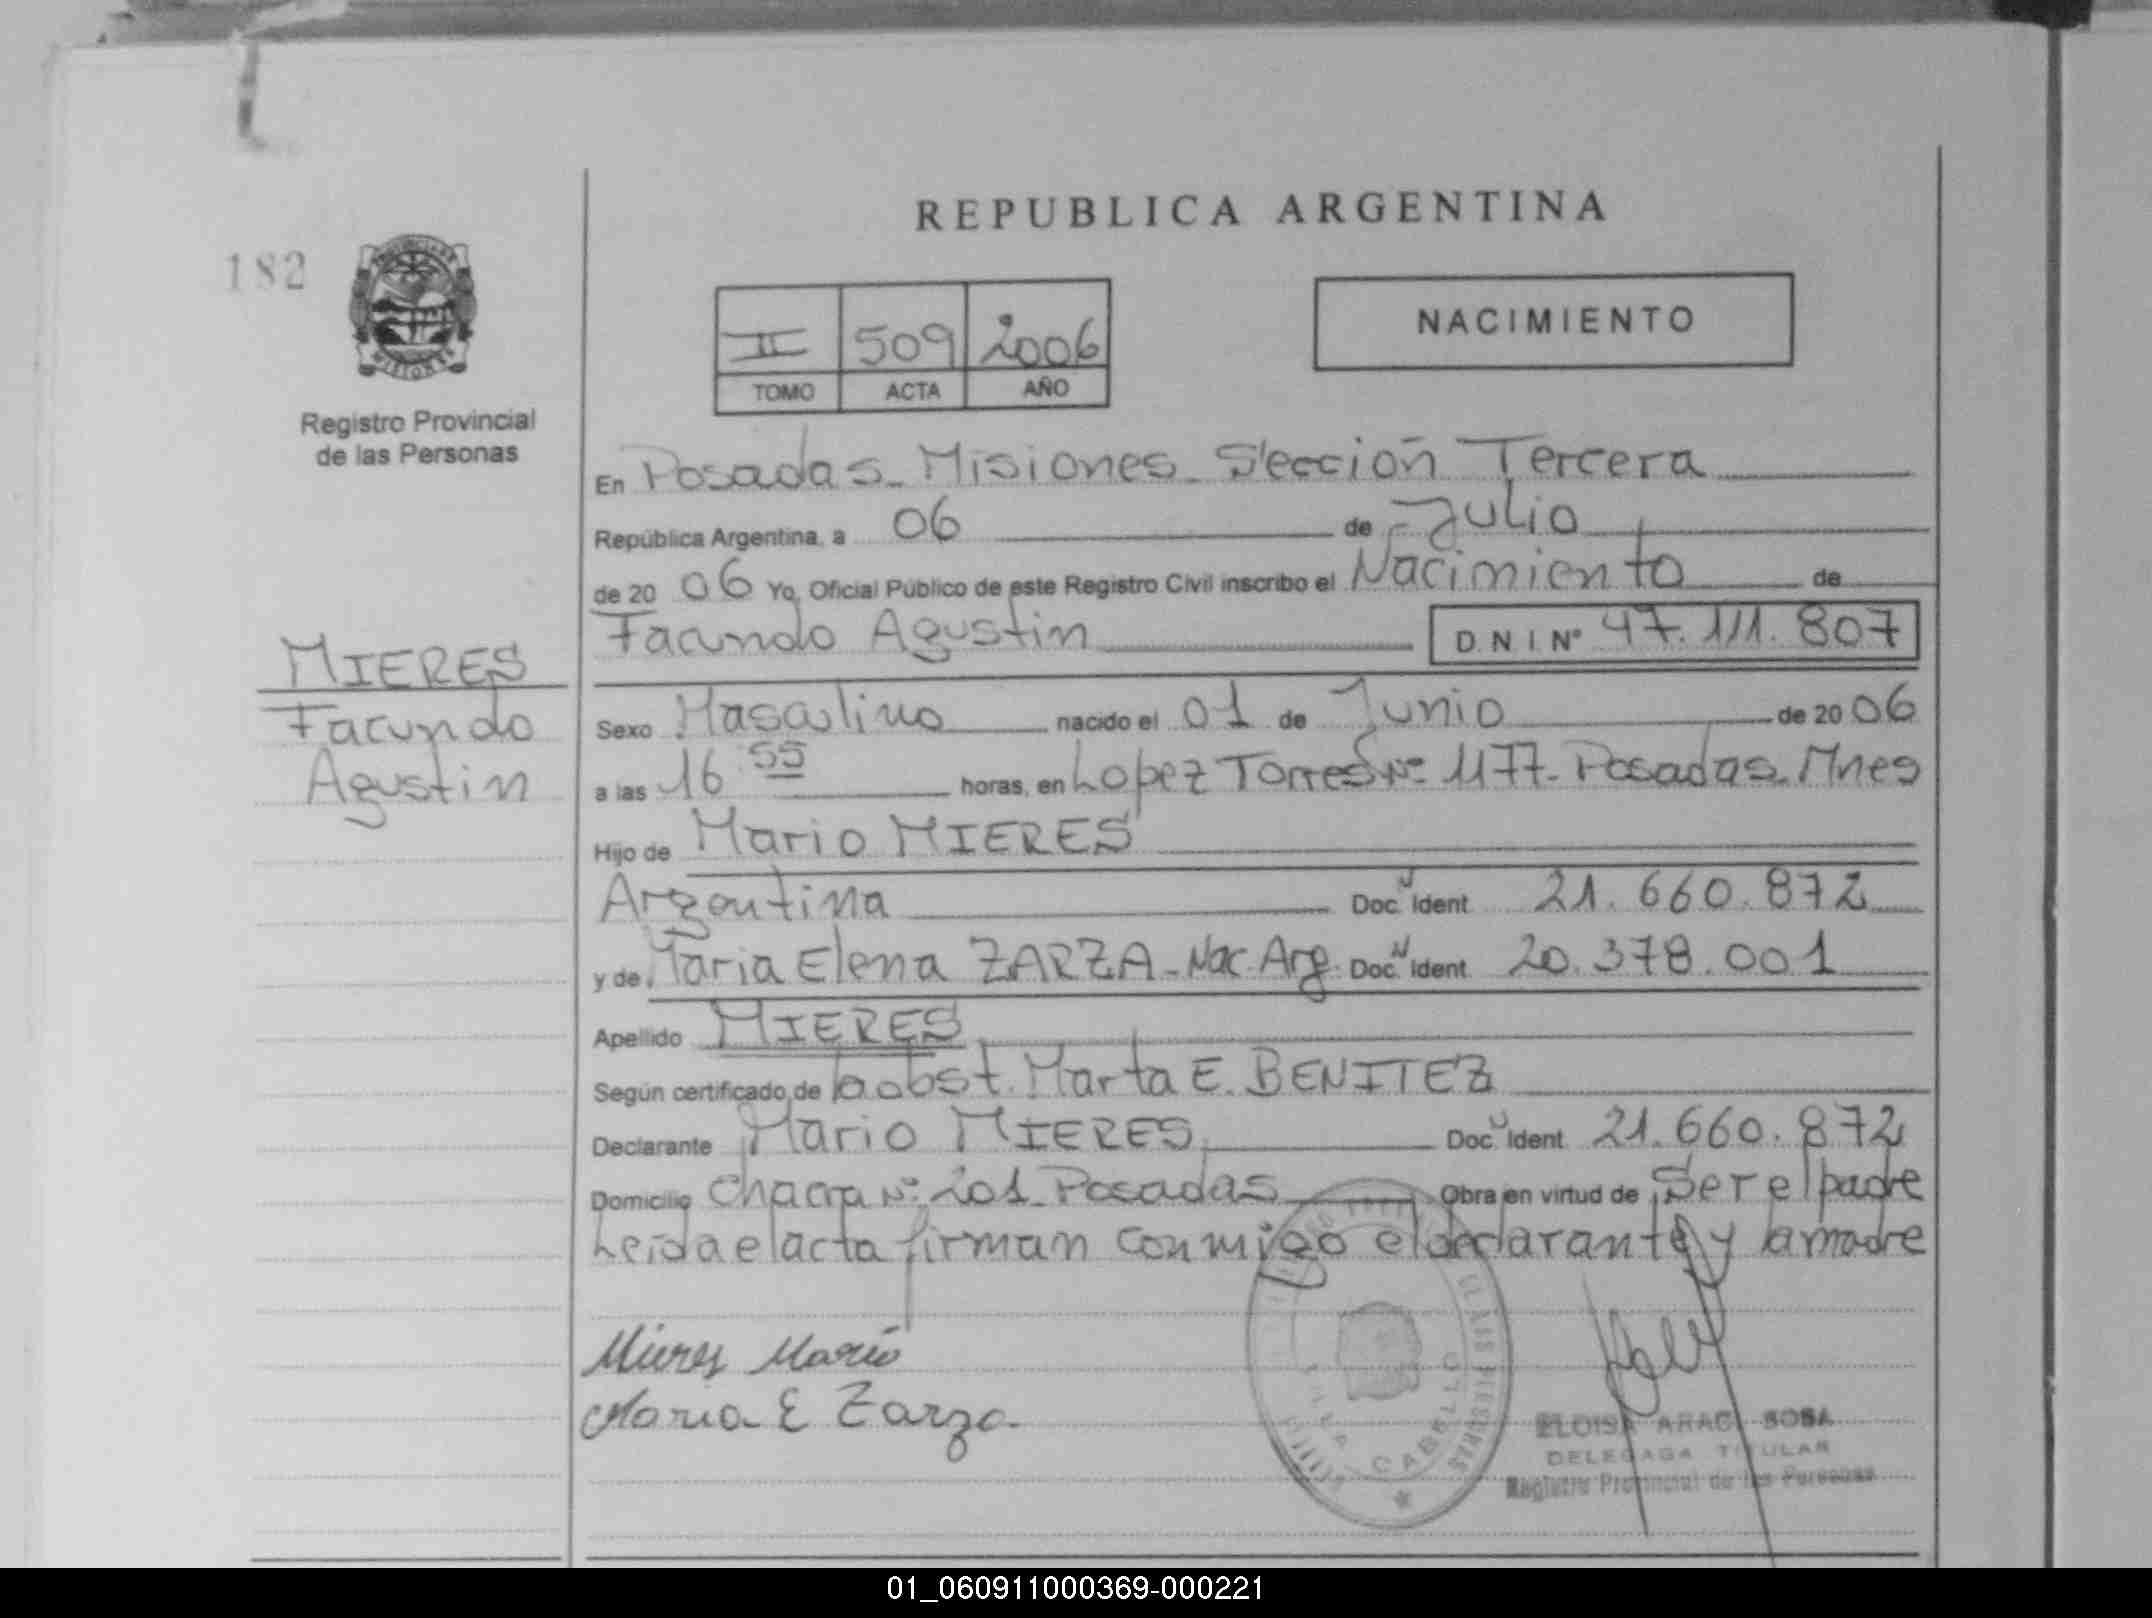 REPUBLICA ARGENTINA
182
II 509 2006
TOMO ACTA AÑO
NACIMIENTO
Registro Provincial
de las Personas
En Posadas - Misiones - Sección Tercera
República Argentina, a 06 de Julio
de 20 06 Yo, Oficial Público de este Registro Civil inscribo el Nacimiento de
Facundo Agustin D.N.I. Nº 47.111.807
MIERES
Facundo
Agustin
Sexo Masculino nacido el 01 de Junio de 20 06
a las 16 55 horas, en Lopez Torres Nº 1177 - Posadas - Mnes
Hijo de Mario MIERES
Argentina Doc. Ident. 21.660.872
y de Maria Elena ZARZA - Nac. Arg. Doc. Ident. 20.378.001
Apellido MIERES
Según certificado de la obst. Marta E. BENITEZ
Declarante Mario MIERES Doc. Ident. 21.660.872
Domicilio Chacra Nº 201 - Posadas Obra en virtud de Ser el padre
Leida el acta firman conmigo el declarante y la madre
Mieres Mario
Maria E Zarza
CABELLO
ELOISA ARAC SOSA
DELEGADA TITULAR
Registro Provincial de las Personas
01_060911000369-000221